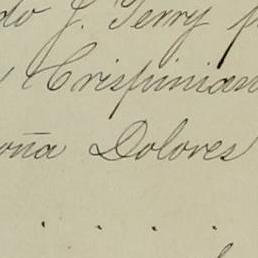 do J. Terry p
y Crispinian
oña Dolores
. . . .